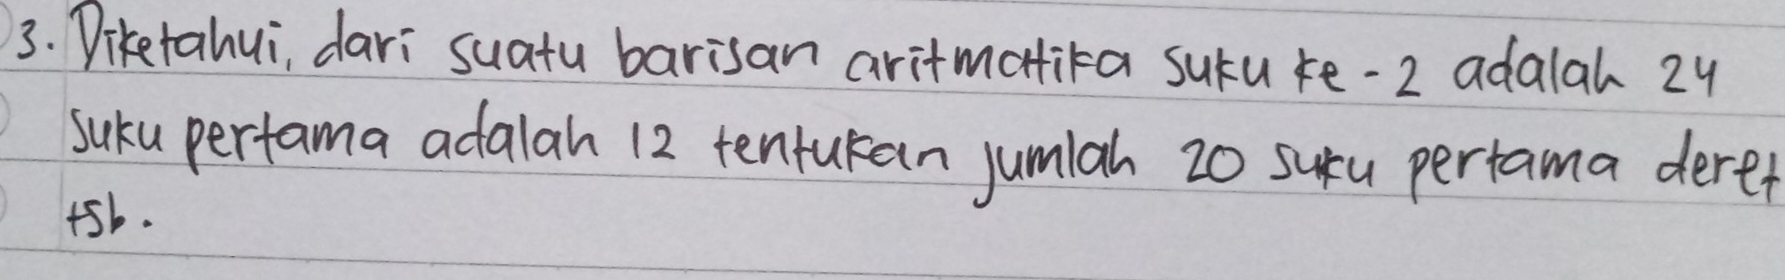 3. Diketahui, dari suatu barisan aritmatika suku ke-2 adalah 24
suku pertama adalah 12 tentukan jumlah 20 suku pertama deret
tsb.